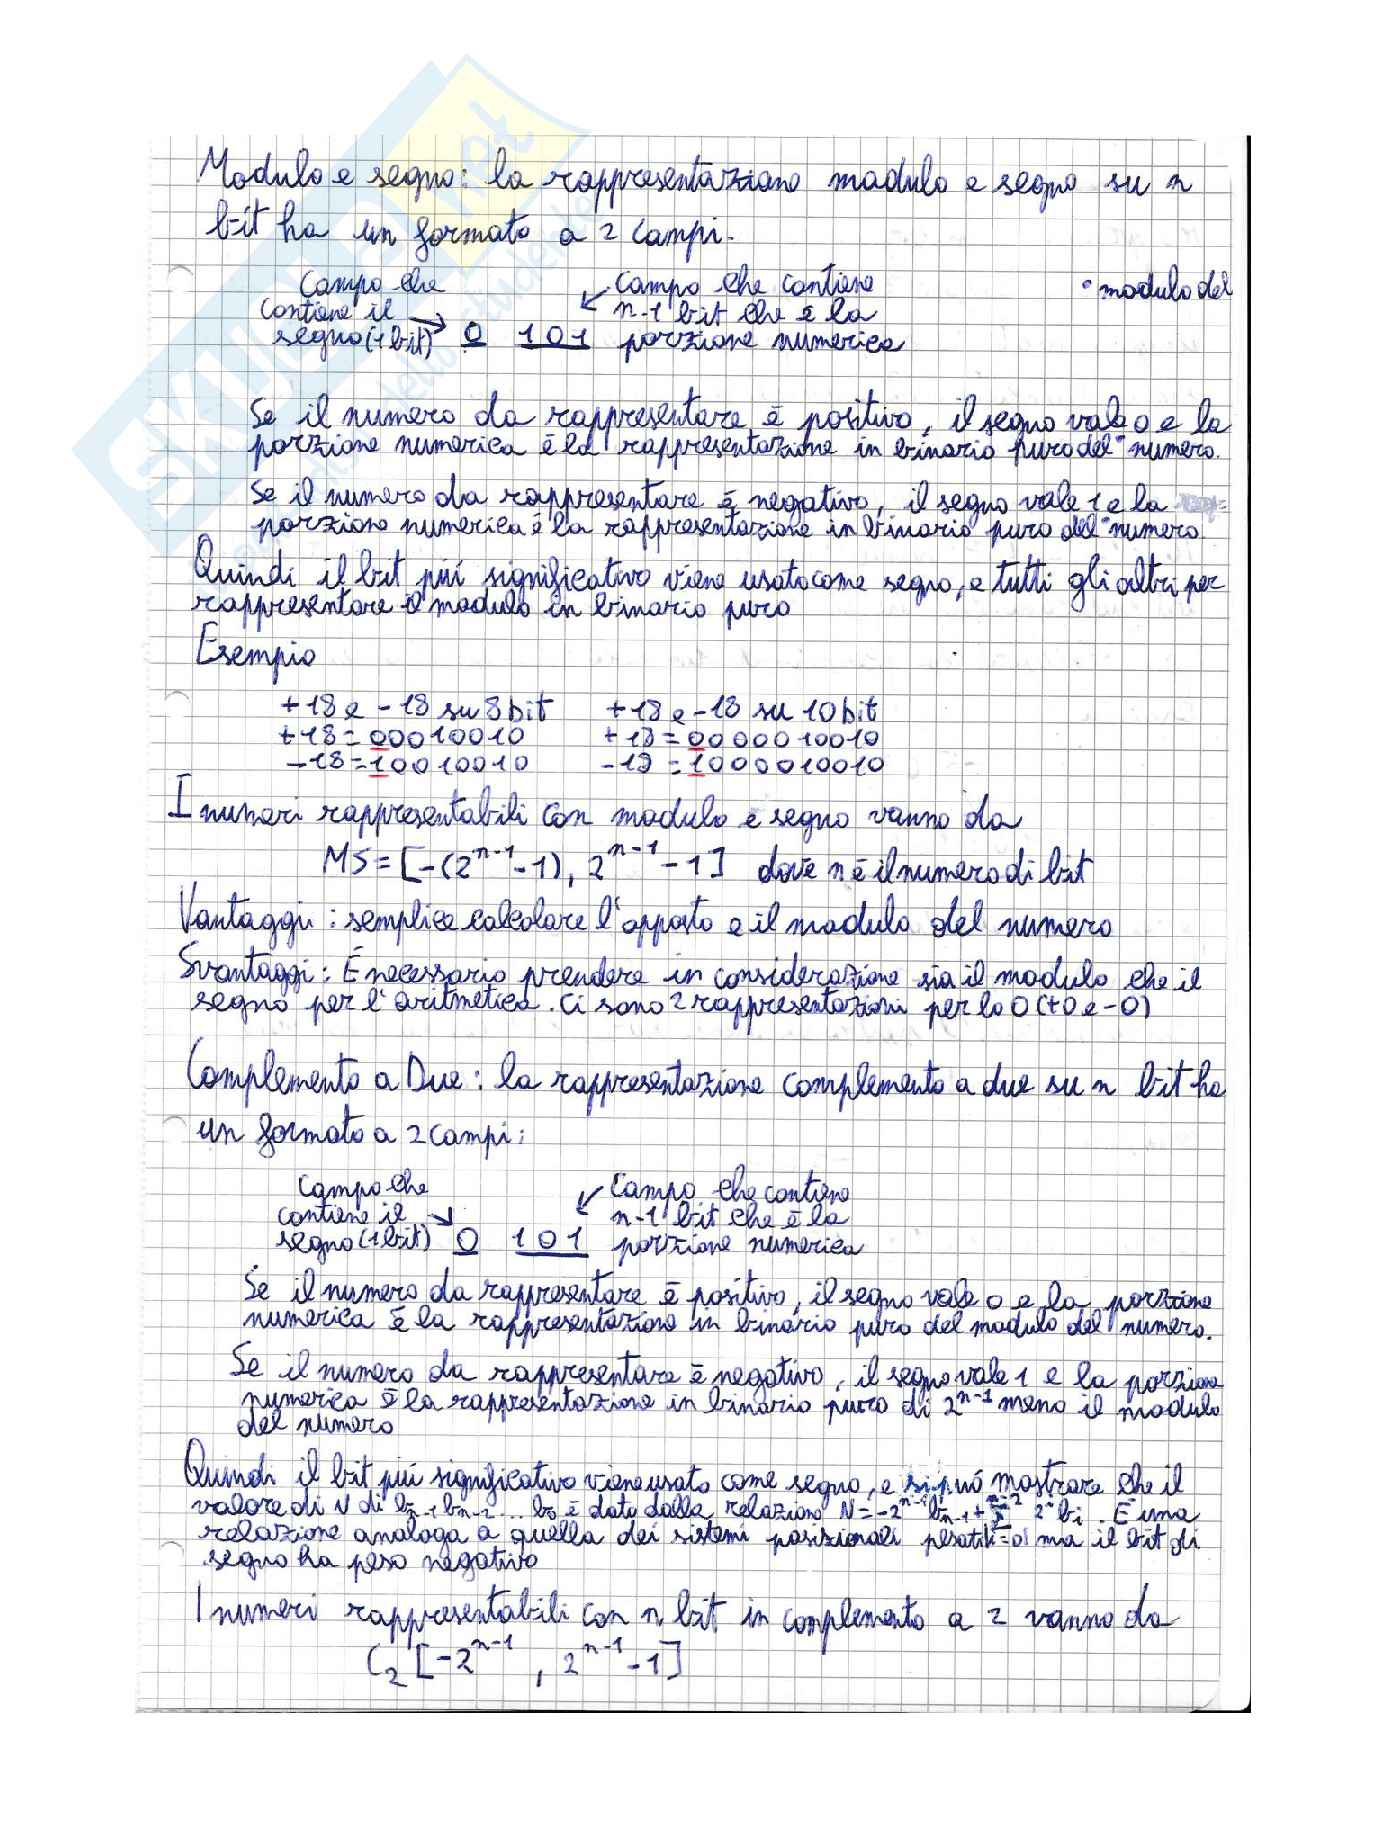 Modulo e segno: la rappresentazione modulo e segno su n
bit ha un formato a 2 campi.
Campo che
contiene il
segno (1 bit) → 0 101
↙ campo che contiene
n-1 bit che è la
porzione numerica
° modulo del
Se il numero da rappresentare è positivo, il segno vale 0 e la
porzione numerica è la rappresentazione in binario puro del ° numero.
Se il numero da rappresentare è negativo, il segno vale 1 e la
porzione numerica è la rappresentazione in binario puro del ° numero.
Quindi il bit più significativo viene usato come segno, e tutti gli altri per
rappresentare il modulo in binario puro
Esempio
+18 e -18 su 8 bit +18 e -18 su 10 bit
+18 = 00010010 +18 = 0000010010
-18 = 10010010 -18 = 1000010010
I numeri rappresentabili con modulo e segno vanno da
MS = [-(2^{n-1}-1), 2^{n-1}-1] dove n è il numero di bit
Vantaggi: semplice calcolare l'opposto e il modulo del numero
Svantaggi: È necessario prendere in considerazione sia il modulo che il
segno per l'aritmetica. Ci sono 2 rappresentazioni per lo 0 (+0 e -0)
Complemento a Due: la rappresentazione complemento a due su n bit ha
un formato a 2 campi:
Campo che
contiene il
segno (1 bit) ↘ 0 101
↙ Campo che contiene
n-1 bit che è la
porzione numerica
Se il numero da rappresentare è positivo, il segno vale 0 e la porzione
numerica è la rappresentazione in binario puro del modulo del numero.
Se il numero da rappresentare è negativo, il segno vale 1 e la porzione
numerica è la rappresentazione in binario puro di 2^{n-1} meno il modulo
del numero
Quindi il bit più significativo viene usato come segno, e si può mostrare che il
valore di N di b_{n-1} b_{n-2} ... b_0 è dato dalla relazione N = -2^{n-1} b_{n-1} + Σ_{i=0}^{n-2} 2^i b_i. È una
relazione analoga a quella dei sistemi posizionali pesati ma il bit di
segno ha peso negativo
I numeri rappresentabili con n bit in complemento a 2 vanno da
C_2 [-2^{n-1}, 2^{n-1}-1]